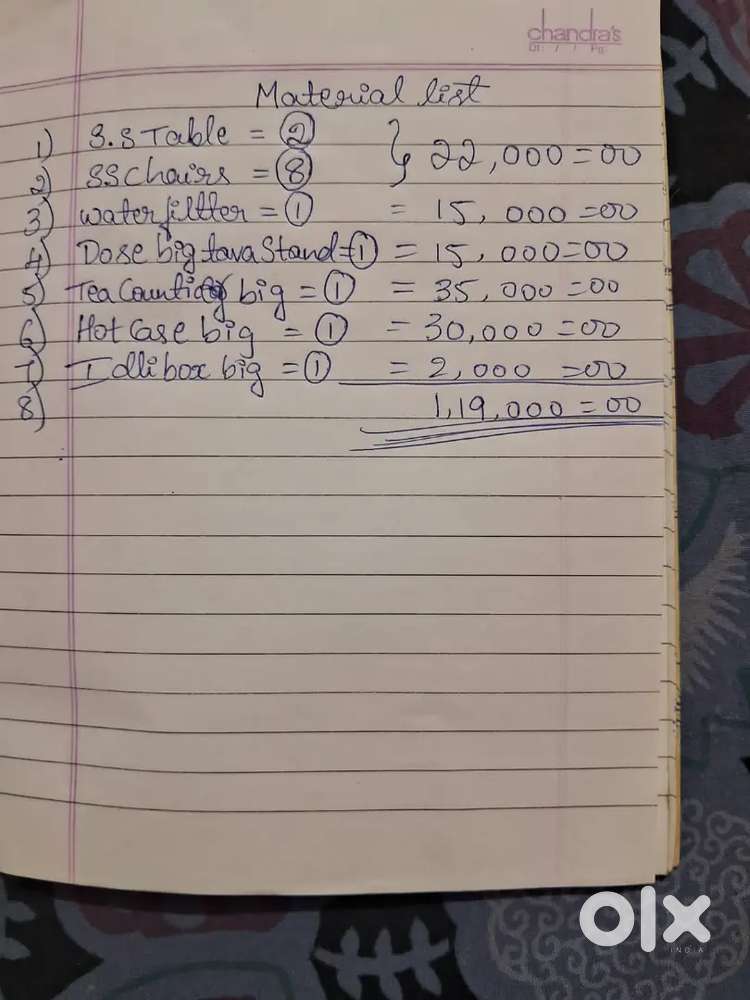 chandra's
Dt: / / Pg:
Material list
1) S.S Table = 2 } 22,000=00
2) SSchairs = 8
3) waterfiltter = 1 = 15,000=00
4) Dose big tava Stand=1 = 15,000=00
5) Tea big = 1 = 35,000=00
6) Hot case big = 1 = 30,000=00
7) Idli box big = 1 = 2,000=00
8) 1,19,000=00
olx
INDIA